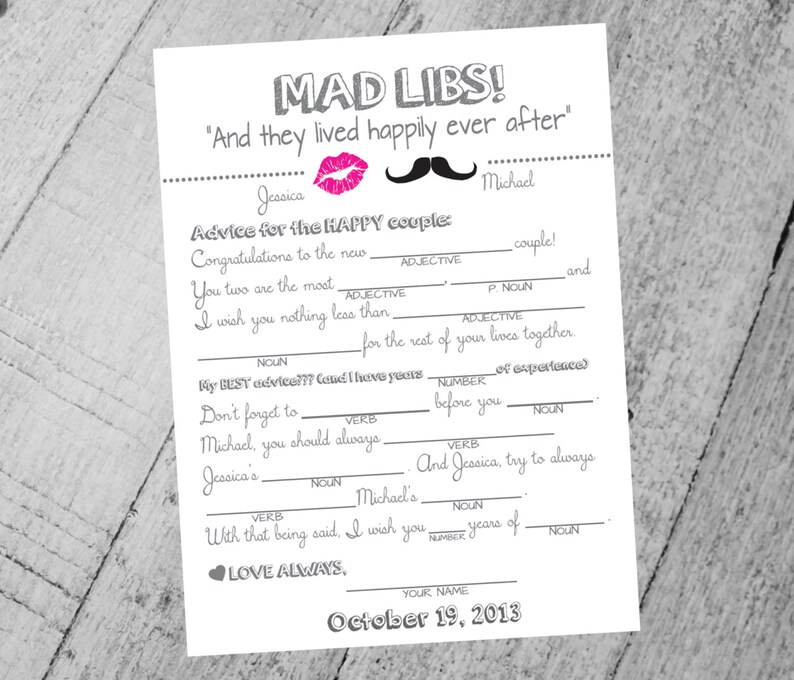 MAD LIBS!
"And they lived happily ever after"
Jessica Michael
Advice for the HAPPY couple:
Congratulations to the new ____________ couple!
ADJECTIVE
You two are the most ____________, ____________ and
ADJECTIVE P. NOUN
I wish you nothing less than ____________
ADJECTIVE
____________ for the rest of your lives together.
NOUN
My BEST advice??? (and I have years ________ of experience)
NUMBER
Don't forget to ____________ before you ________.
VERB NOUN
Michael, you should always ____________
VERB
Jessica's ____________. And Jessica, try to always
NOUN
____________ Michael's ________.
VERB NOUN
With that being said, I wish you ____ years of ________.
NUMBER NOUN
LOVE ALWAYS, ____________
YOUR NAME
October 19, 2013